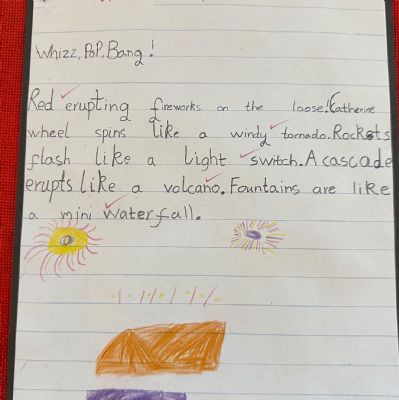 Whizz, Pop, Bang!
Red erupting fireworks on the loose! Catherine
wheel spins like a windy tornado. Rockets
flash like a light switch. A cascade
erupts like a volcano. Fountains are like
a mini waterfall.